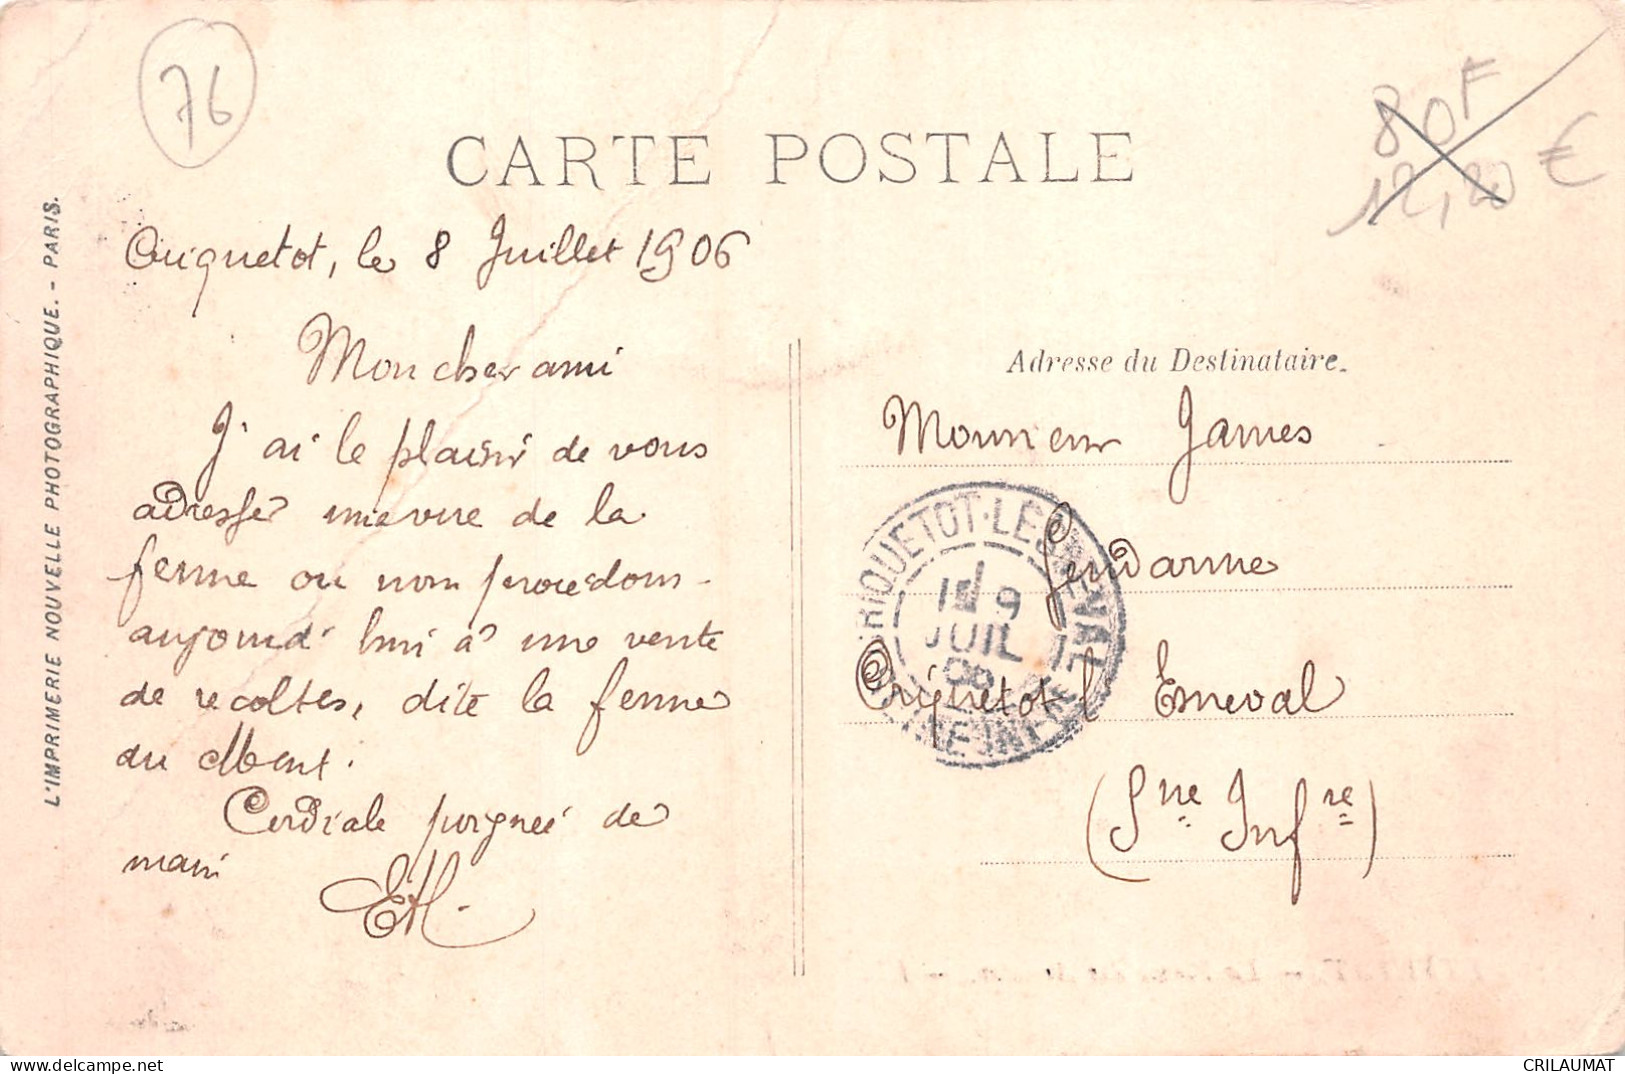 76
80F
12,20 €
CARTE POSTALE
L'IMPRIMERIE NOUVELLE PHOTOGRAPHIQUE. - PARIS.
Criquetot, le 8 Juillet 1906
Mon cher ami
J'ai le plaisir de vous
adresser une vue de la
ferme où nous procédons
aujourd'hui à une vente
de récoltes, dite la ferme
du
Cordiale poignée de
main
Adresse du Destinataire.
Monsieur James
Gendarme
Criquetot l'Esneval
(Sne Infre)
CRIQUETOT-LESNEVAL
9
JUIL
06
SEINE INFRE
CRILAUMAT